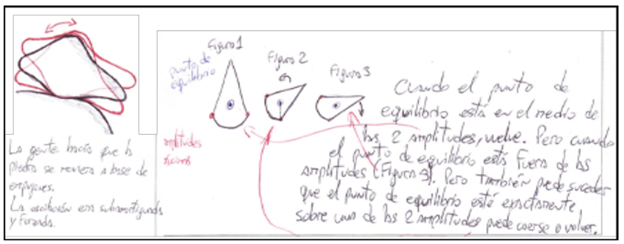 Figura 1
Figura 2
Figura 3
punto de
equilibrio
La gente hacía que la
piedra se moviera a base de
empujones.
La oscilación era subamortiguada
y forzada.
amplitudes
máximas
Cuando el punto de
equilibrio está en el medio de
las 2 amplitudes, vuelve. Pero cuando
el punto de equilibrio está fuera de las
amplitudes (Figura 3). Pero también puede suceder
que el punto de equilibrio esté exactamente
sobre una de las 2 amplitudes puede caerse o volver.